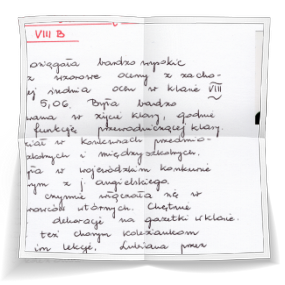 VIII B
osiągała bardzo wysokie
z wzorowe oceny z zacho-
ej średnia ocen w klasie VIII
5,06. Była bardzo
wana w życie klasy, godnie
funkcję przewodniczącej klasy.
ział w konkursach przedmio-
szkolnych i międzyszkolnych.
yła w wojewódzkim konkursie
nym z j. angielskiego
czynnie włączała się w
wtórnych. Chętnie
dekoracje na gazetki w klasie.
też chorym koleżankom
im lekcje. Lubiana przez